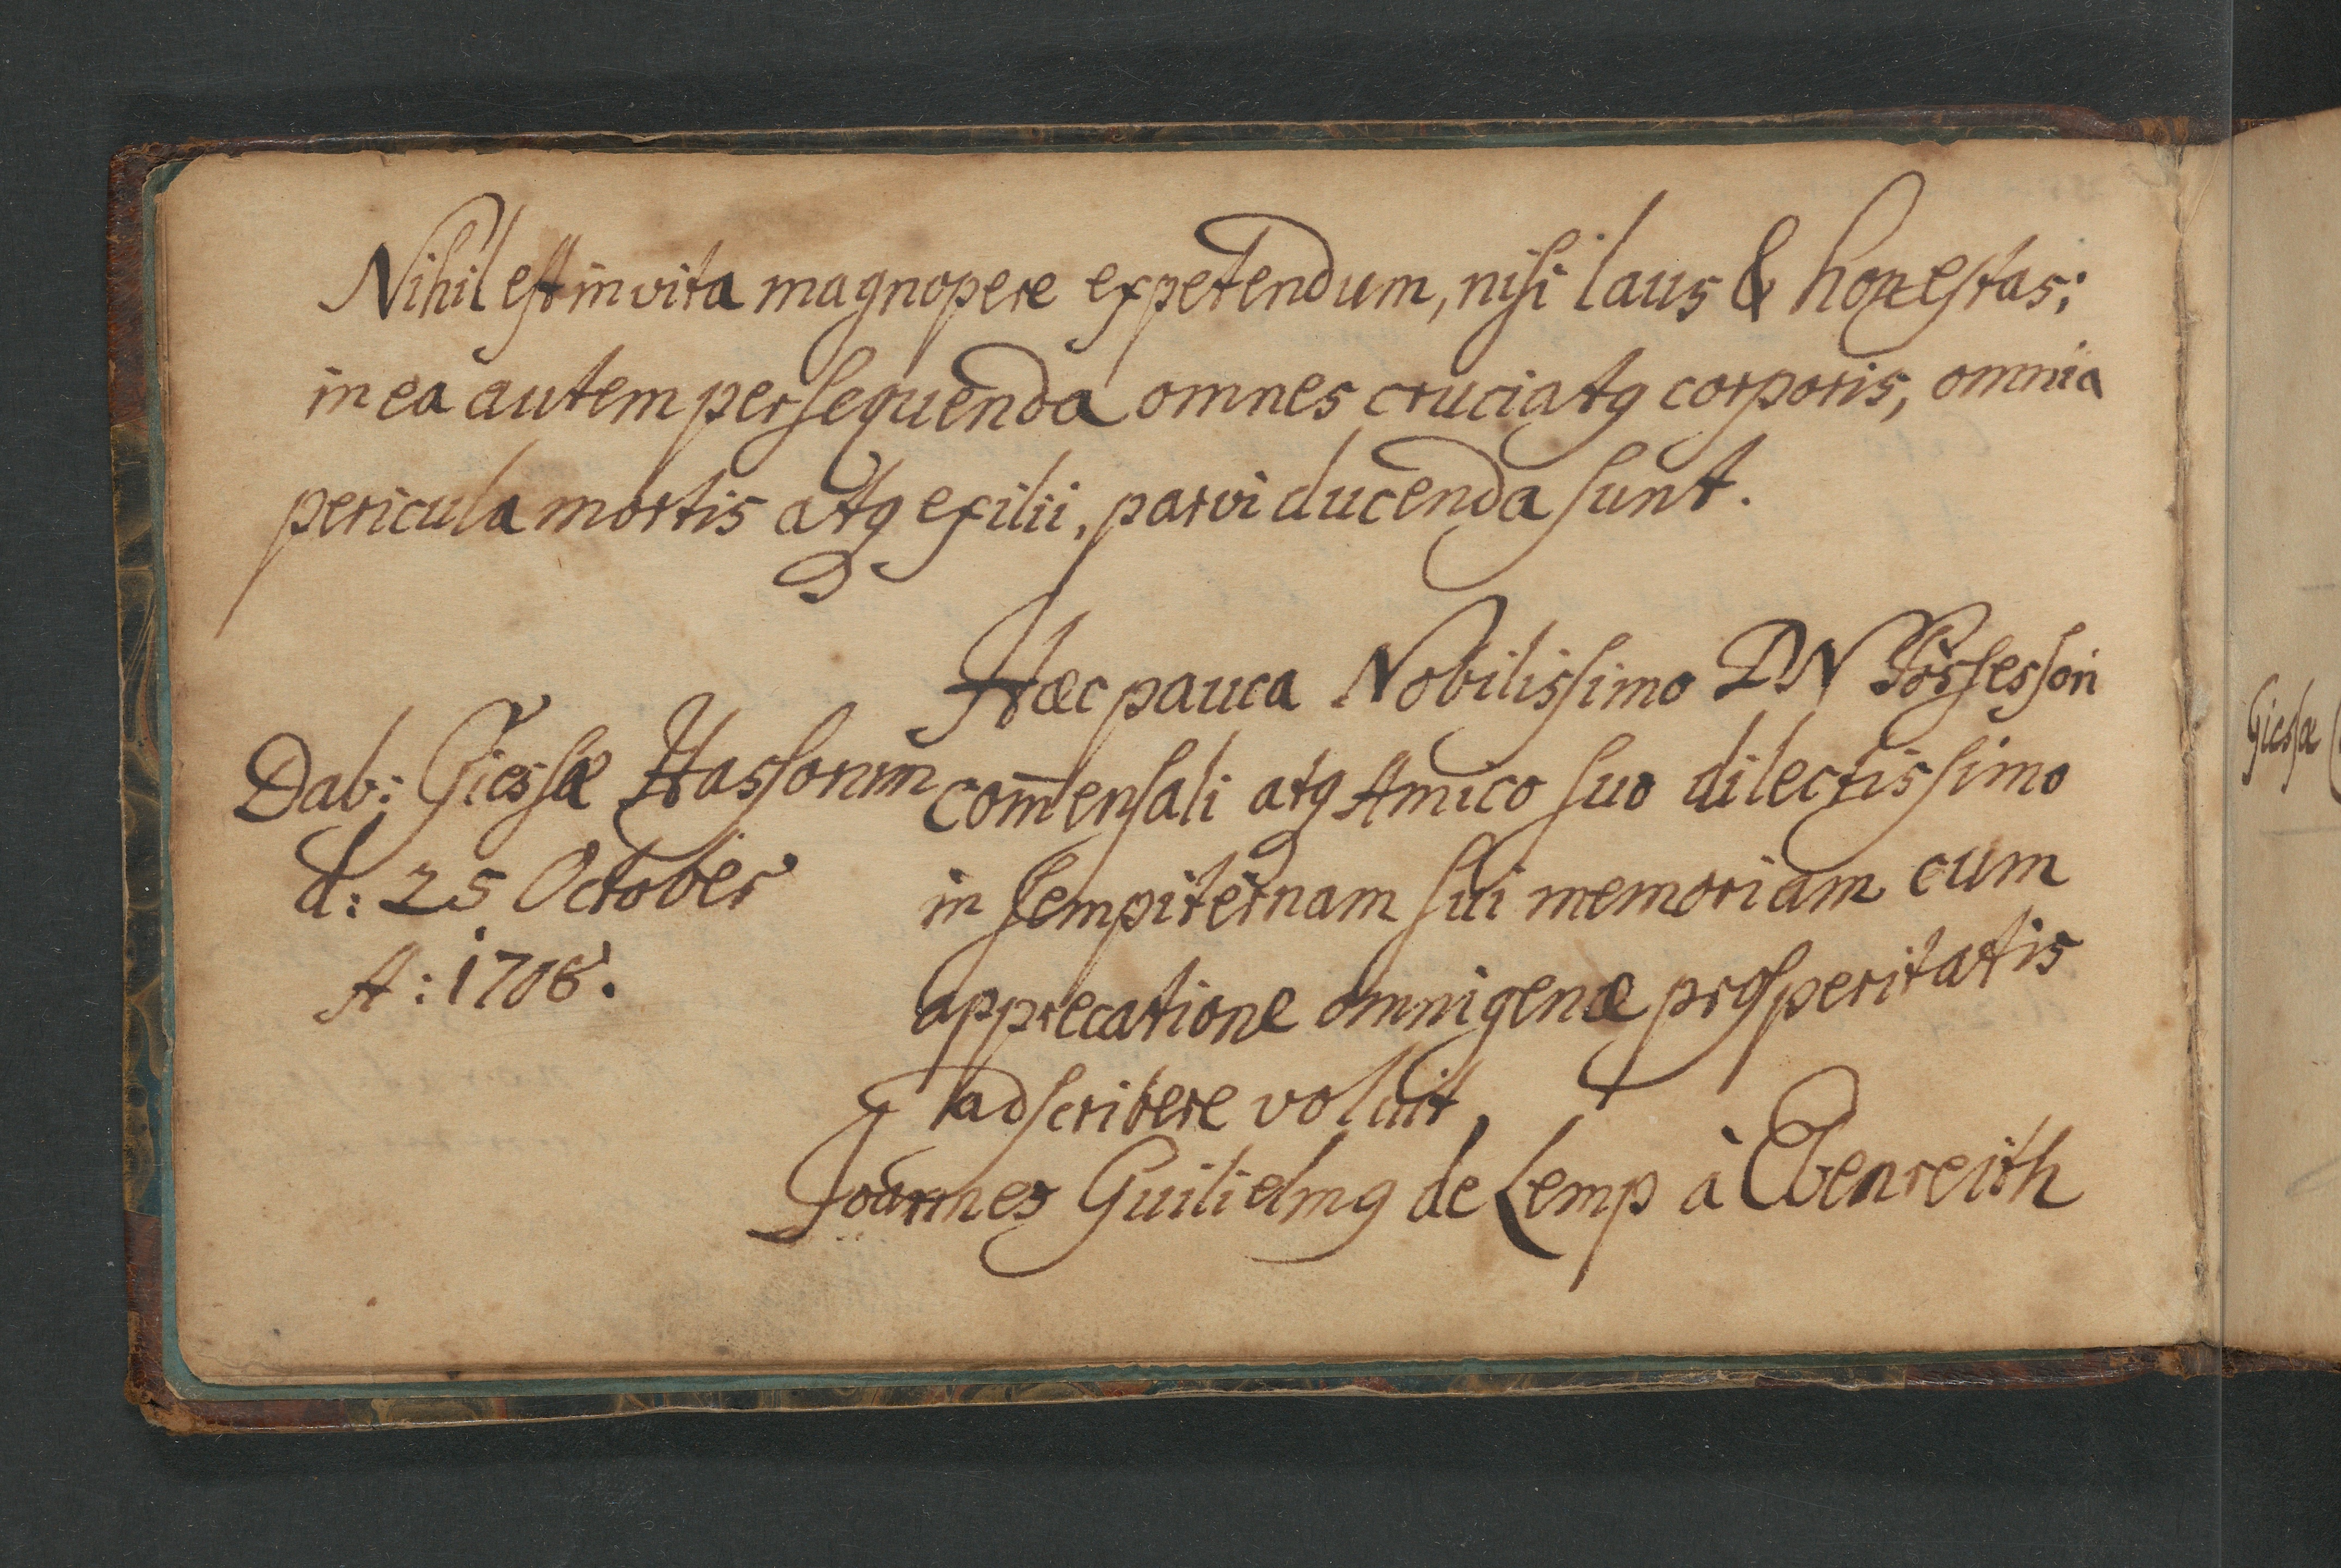 Nihil est in vita magnopere expetendum, nisi laus & honestas;
in ea autem persequenda omnes cruciatꝰ corporis, omnia
pericula mortis atqꝫ exilii, parvi ducenda sunt.
Hæc pauca Nobilissimo DN Possessori
com̄ensali atqꝫ Amico suo dilectissimo
in sempiternam sui memoriam cum
apprecatione omnigenæ prosperitatis
adscribere voluit,
Joannes Guilielmꝰ de Lemp à Ebenreith
Dab: Giessæ Hassorum
d: 25 October
A: 1706.
Giessæ